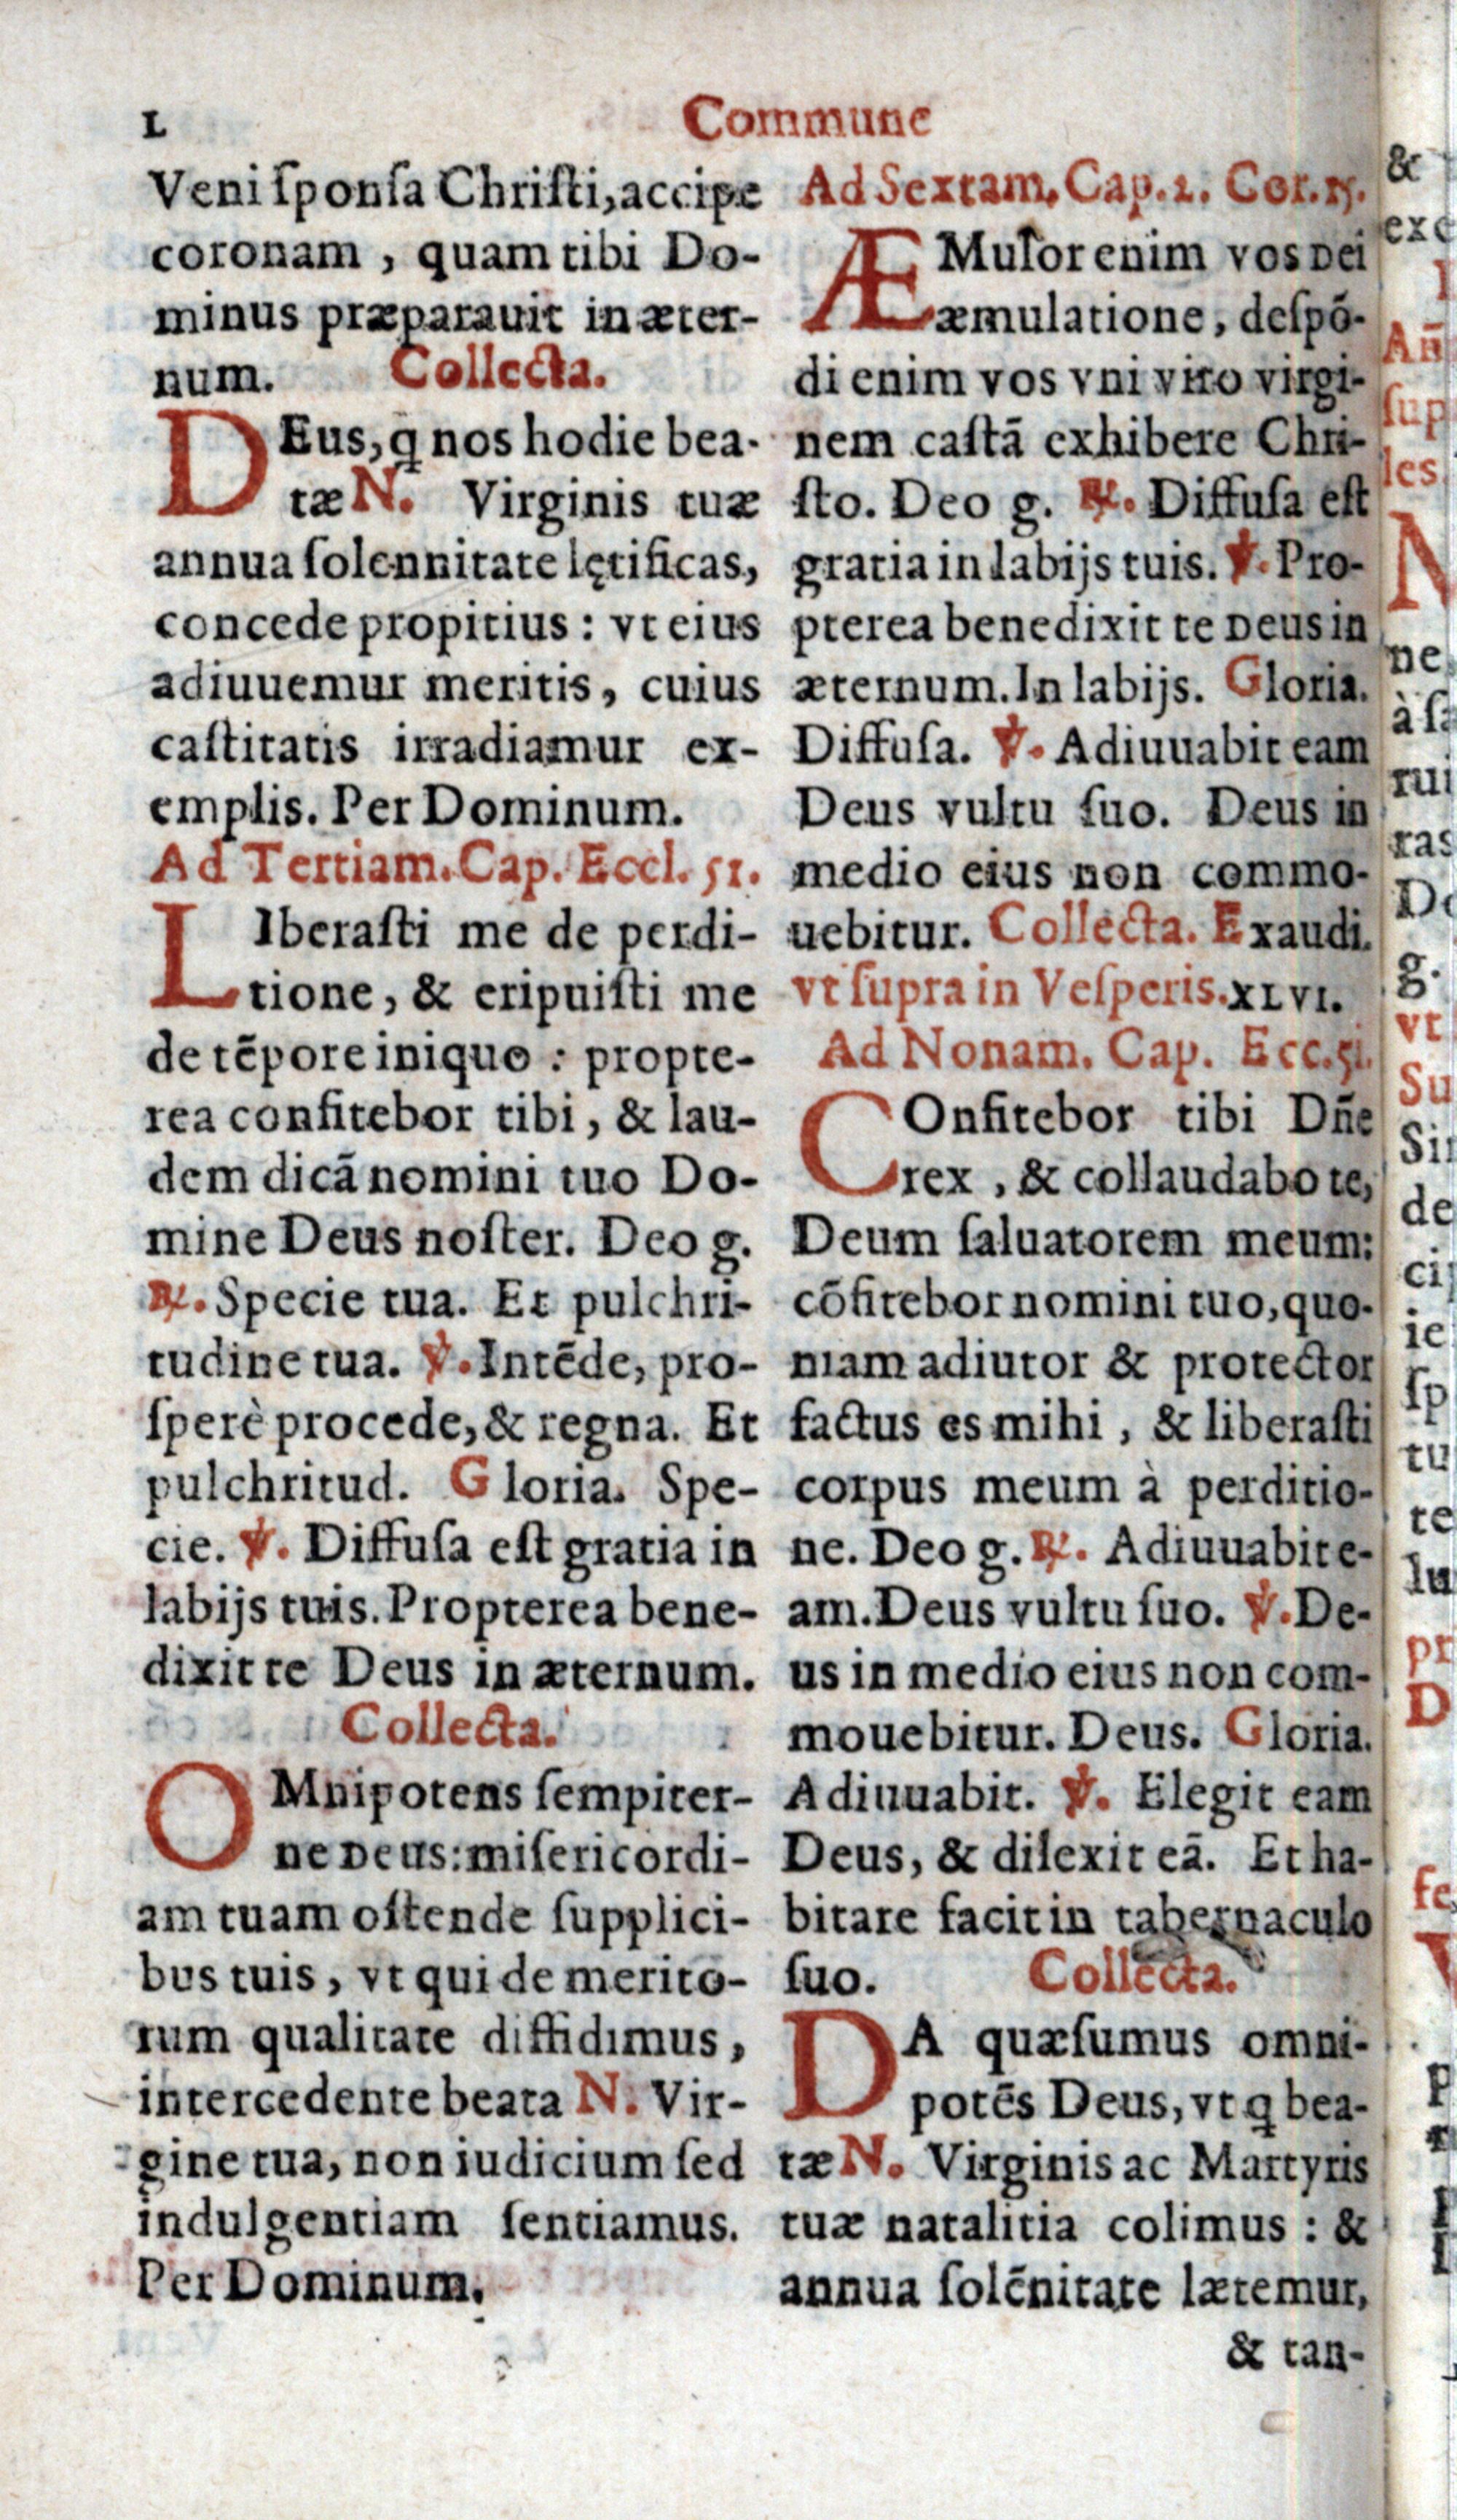 L
Commune
Veni ſponſa Chriſti, accipe
coronam , quam tibi Do-
minus præparauit in æter-
num. Collecta.
DEus, ꝗ nos hodie bea-
tæ N. Virginis tuæ
annua ſolennitate lętificas,
concede propitius : vt eius
adiuuemur meritis, cuius
caſtitatis irradiamur ex-
emplis. Per Dominum.
Ad Tertiam. Cap. Eccl. 51.
LIberaſti me de perdi-
tione, & eripuiſti me
de tẽpore iniquo : propte-
rea confitebor tibi, & lau-
dem dicã nomini tuo Do-
mine Deus noſter. Deo g.
℞. Specie tua. Et pulchri-
tudine tua. ℣. Intẽde, pro-
ſperè procede, & regna. Et
pulchritud. Gloria. Spe-
cie. ℣. Diffuſa eſt gratia in
labijs tuis. Propterea bene-
dixit te Deus in æternum.
Collecta.
OMnipotens ſempiter-
ne Deus: miſericordi-
am tuam oſtende ſupplici-
bus tuis, vt qui de merito-
rum qualitate diffidimus,
intercedente beata N. Vir-
gine tua, non iudicium ſed
indulgentiam ſentiamus.
Per Dominum.
Ad Sextam. Cap. 2. Cor. 15.
ÆMulor enim vos Dei
æmulatione, deſpõ-
di enim vos vni viro virgi-
nem caſtã exhibere Chri-
ſto. Deo g. ℞. Diffuſa eſt
gratia in labijs tuis. ℣. Pro-
pterea benedixit te Deus in
æternum. In labijs. Gloria.
Diffuſa. ℣. Adiuuabit eam
Deus vultu ſuo. Deus in
medio eius non commo-
uebitur. Collecta. Exaudi.
vt ſupra in Veſperis. XLVI.
Ad Nonam. Cap. Ecc. 51.
COnfitebor tibi Dñe
rex , & collaudabo te,
Deum ſaluatorem meum:
cõfitebor nomini tuo, quo-
niam adiutor & protector
factus es mihi , & liberaſti
corpus meum à perditio-
ne. Deo g. ℞. Adiuuabit e-
am. Deus vultu ſuo. ℣. De-
us in medio eius non com-
mouebitur. Deus. Gloria.
Adiuuabit. ℣. Elegit eam
Deus, & dilexit eã. Et ha-
bitare facit in tabernaculo
ſuo. Collecta.
DA quæſumus omni-
potẽs Deus, vt ꝗ bea-
tæ N. Virginis ac Martyris
tuæ natalitia colimus : &
annua ſolẽnitate lætemur,
& tan-